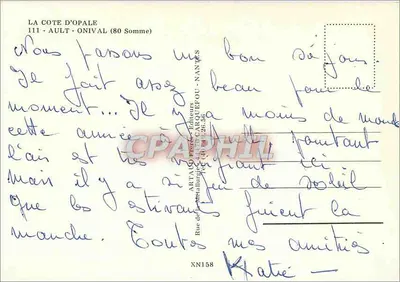 LA COTE D'OPALE
111 - AULT - ONIVAL (80 Somme)
Nous passons un bon séjour.
Il fait assez beau pour le
moment... Il y a moins de monde
cette année à Ault, pourtant
l'air est très vivifiant ici
mais il y a si peu de soleil
que les estivants fuient la
manche. Toutes mes amitiés
Katie
CPAPHIL
ARTAUD Frères Editeurs
Rue de la Métallurgie CARQUEFOU - NANTES
XN158